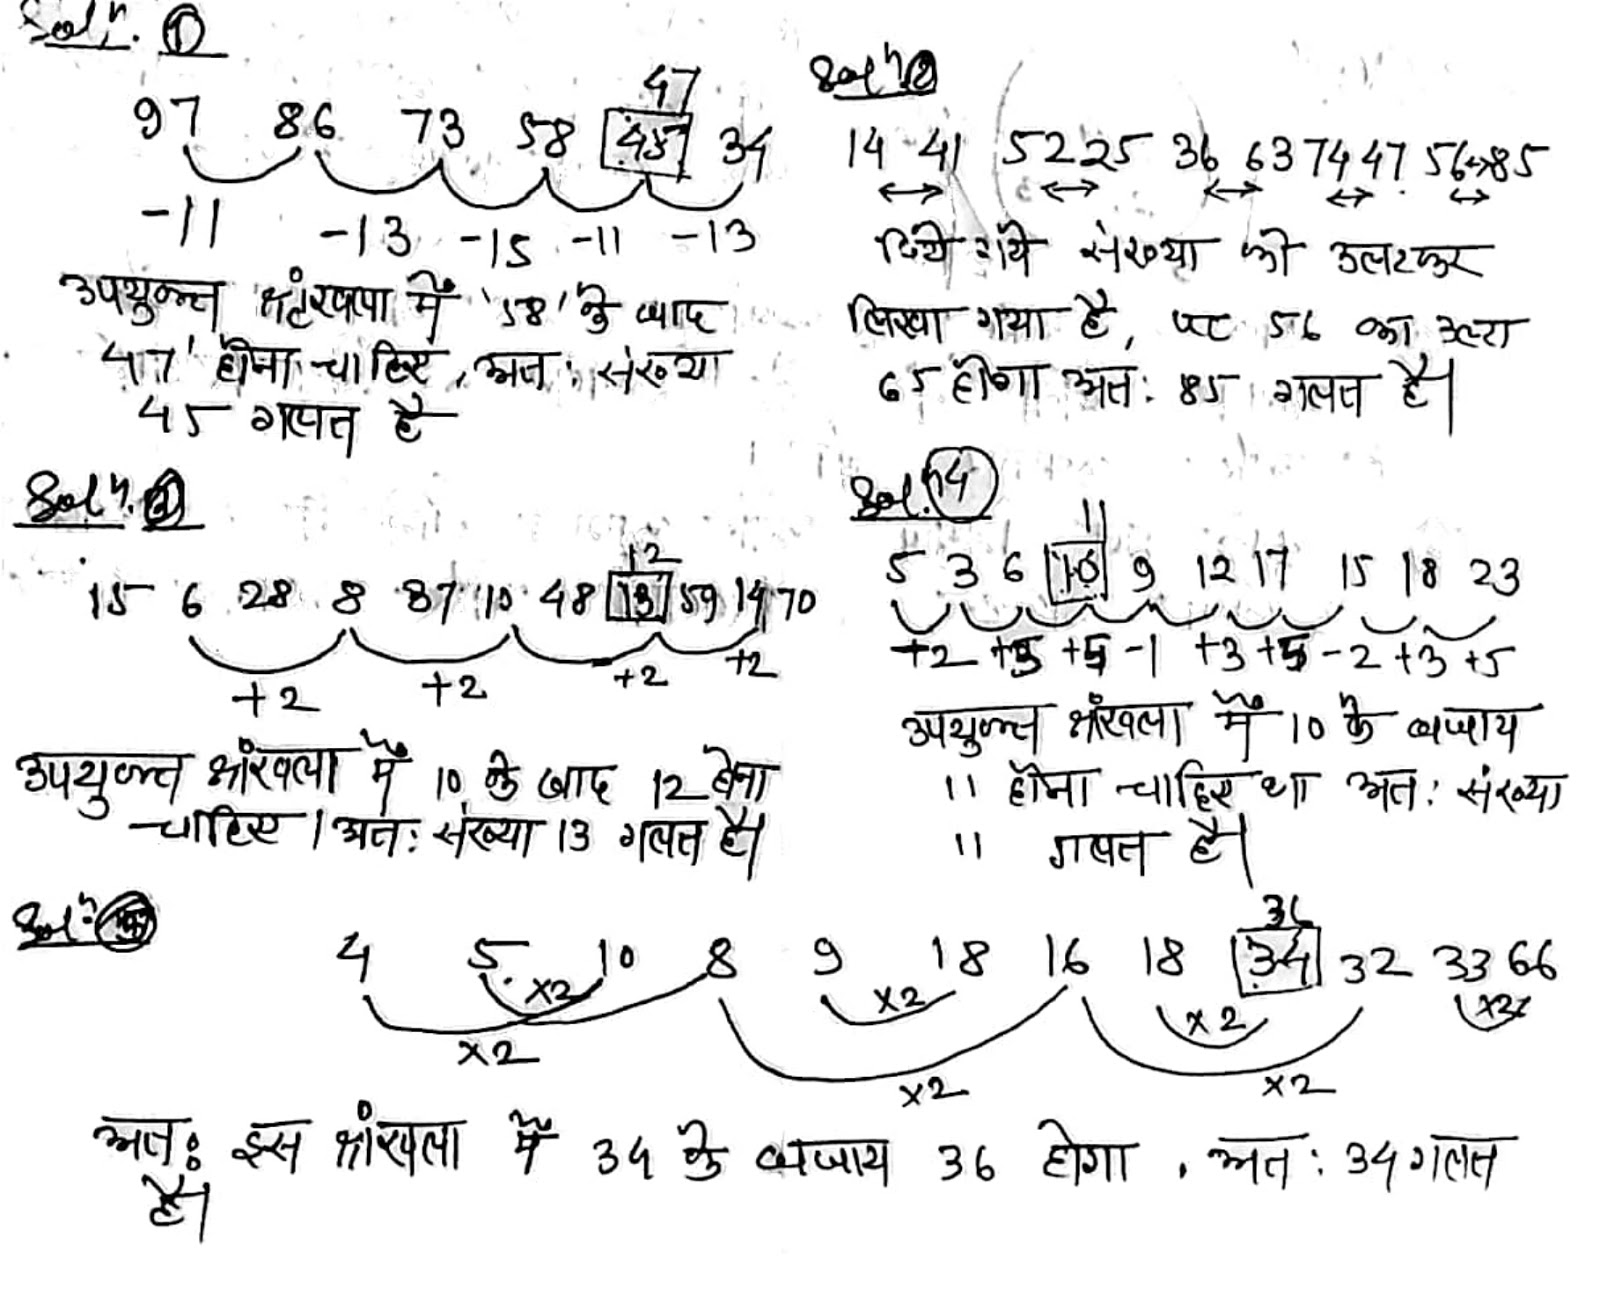 Solⁿ. ①
47
97 86 73 58 45 34
-11 -13 -15 -11 -13
उपयुक्त श्रृंखला में '58' के बाद
47' होना चाहिए, अतः संख्या
45 गलत है
Solⁿ ②
14 41 52 25 36 63 74 47 56↔85
↔ ↔ ↔ ↔ ↔
दिये गये संख्या को उलटकर
लिखा गया है, पर 56 का उल्टा
65 होगा अतः 85 गलत है।
Solⁿ. ③
12
15 6 28 8 37 10 48 13 59 14 70
+2 +2 +2 +2
उपयुक्त श्रांखला में 10 के बाद 12 होना
चाहिए। अतः संख्या 13 गलत है।
Solⁿ. 14
11
5 3 6 10 9 12 17 15 18 23
+2 +3 +5 -1 +3 +5 -2 +3 +5
उपयुक्त श्रांखला में 10 के बजाय
11 होना चाहिए था अतः संख्या
11 गलत है।
Solⁿ.
36
4 5 10 8 9 18 16 18 34 32 33 66
×2 ×2 ×2 ×2
×2 ×2 ×2
अतः इस श्रांखला में 34 के बजाय 36 होगा, अतः 34 गलत
है।